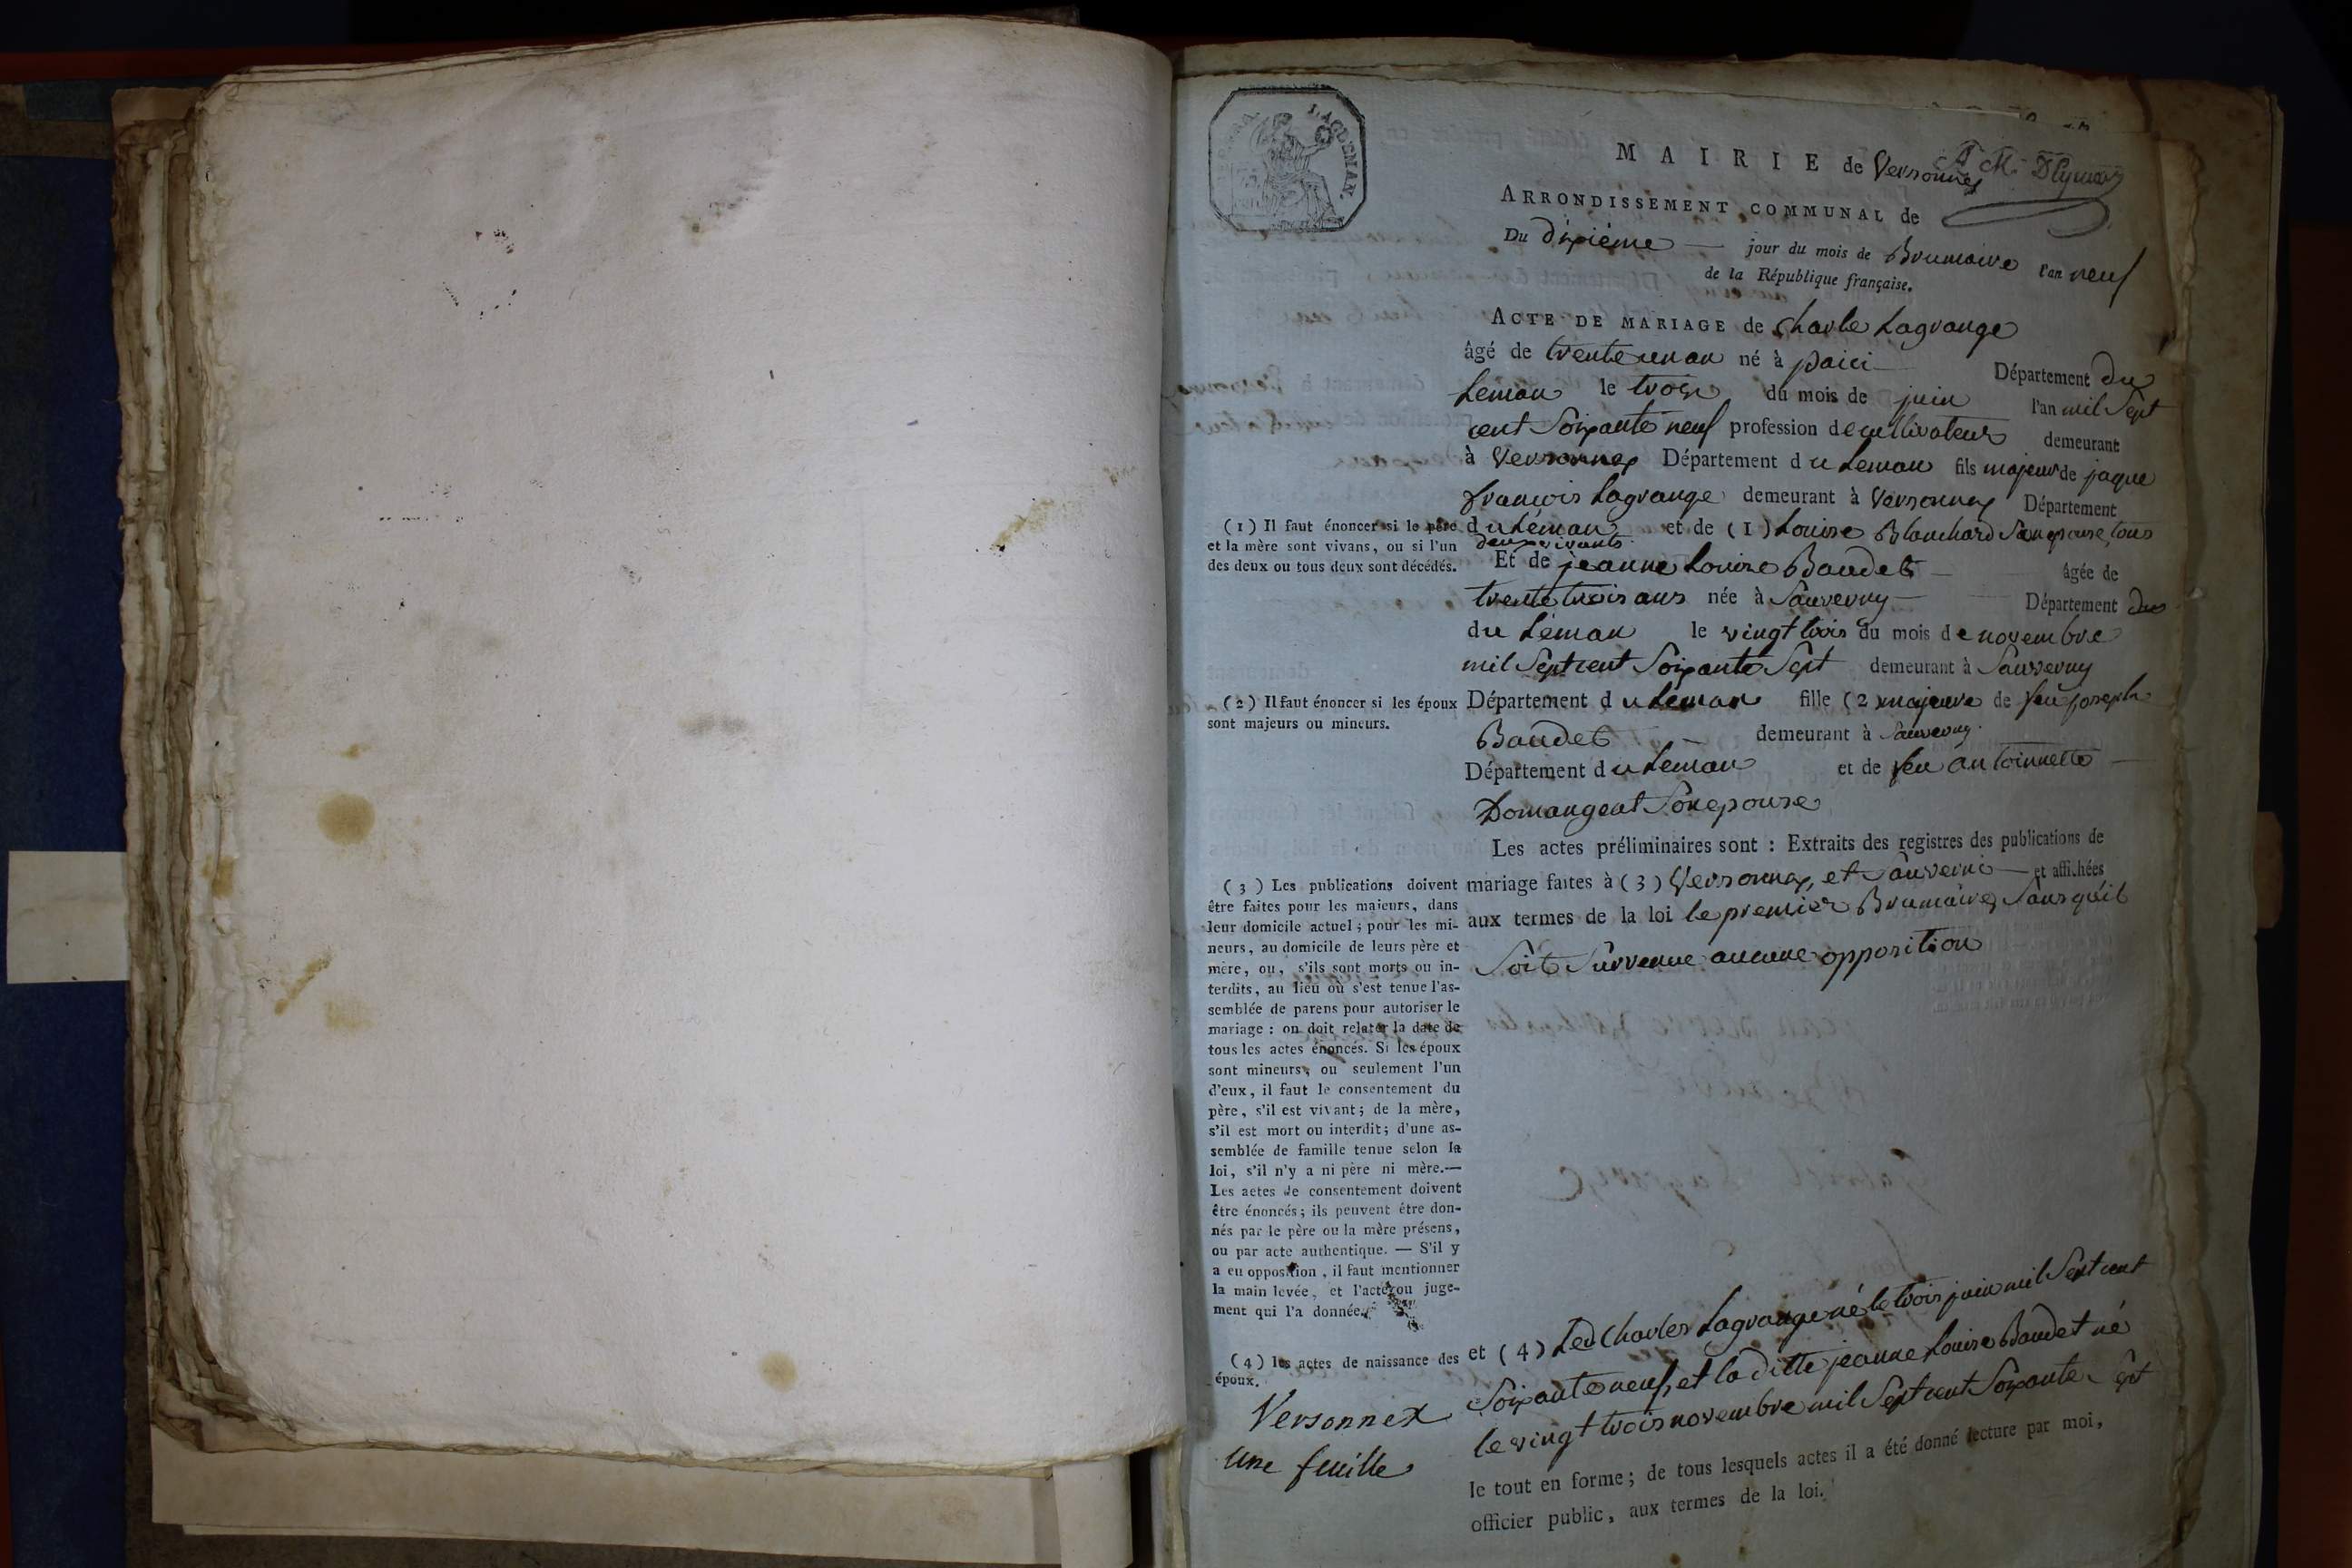 MAIRIE de Versonnex
ARRONDISSEMENT COMMUNAL de
Du dixiéme — jour du mois de Brumaire l'an neuf
de la République française.
ACTE DE MARIAGE de Charle Lagrange
âgé de trente un an né à paici Département du
Leman le trois du mois de juin l'an mil Sept
cent Soixante neuf profession de cultivateur demeurant
à Versonnex Département du Leman fils majeur de jaque
francois Lagrange demeurant à Versonnex Département
(1) Il faut énoncer si le père
et la mère sont vivans, ou si l'un
des deux ou tous deux sont décédés.
du Léman et de (1) Louise Blanchard Son epouse, tous
deux vivants
Et de jeanne Louise Baudet — âgée de
trente trois ans née à Sauverny — Département du
du Léman le vingt trois du mois de novembre
mil Sept cent Soixante Sept demeurant à Sauverny
(2) Il faut énoncer si les époux
sont majeurs ou mineurs.
Département du Léman fille (2 majeure de feu joseph
Baudet — demeurant à Sauverny
Département du Léman et de feu antoinette —
Domangeat Son epouse
Les actes préliminaires sont : Extraits des registres des publications de
mariage faites à (3) Versonnex, et Sauverni — et affichées
aux termes de la loi le premier Brumaire, Sans qu'il
Soit Survenue aucune opposition
(3) Les publications doivent
être faites pour les maieurs, dans
leur domicile actuel ; pour les mi-
neurs, au domicile de leurs père et
mère, ou, s'ils sont morts ou in-
terdits, au lieu où s'est tenue l'as-
semblée de parens pour autoriser le
mariage : on doit relater la date de
tous les actes énoncés. Si les époux
sont mineurs, ou seulement l'un
d'eux, il faut le consentement du
père, s'il est vivant ; de la mère,
s'il est mort ou interdit ; d'une as-
semblée de famille tenue selon la
loi, s'il n'y a ni père ni mère.—
Les actes de consentement doivent
être énoncés ; ils peuvent être don-
nés par le père ou la mère présens,
ou par acte authentique. — S'il y
a eu opposition, il faut mentionner
la main levée, et l'acte ou juge-
ment qui l'a donnée.
(4) les actes de naissance des
époux.
Versonnex
une feuille
et (4) Led Charles Lagrange né le trois juin mil Sept cent
Soixante neuf, et la ditte jeanne Louise Baudet né
le vingt trois novembre mil Sept cent Soixante Sept
le tout en forme ; de tous lesquels actes il a été donné lecture par moi,
officier public, aux termes de la loi.